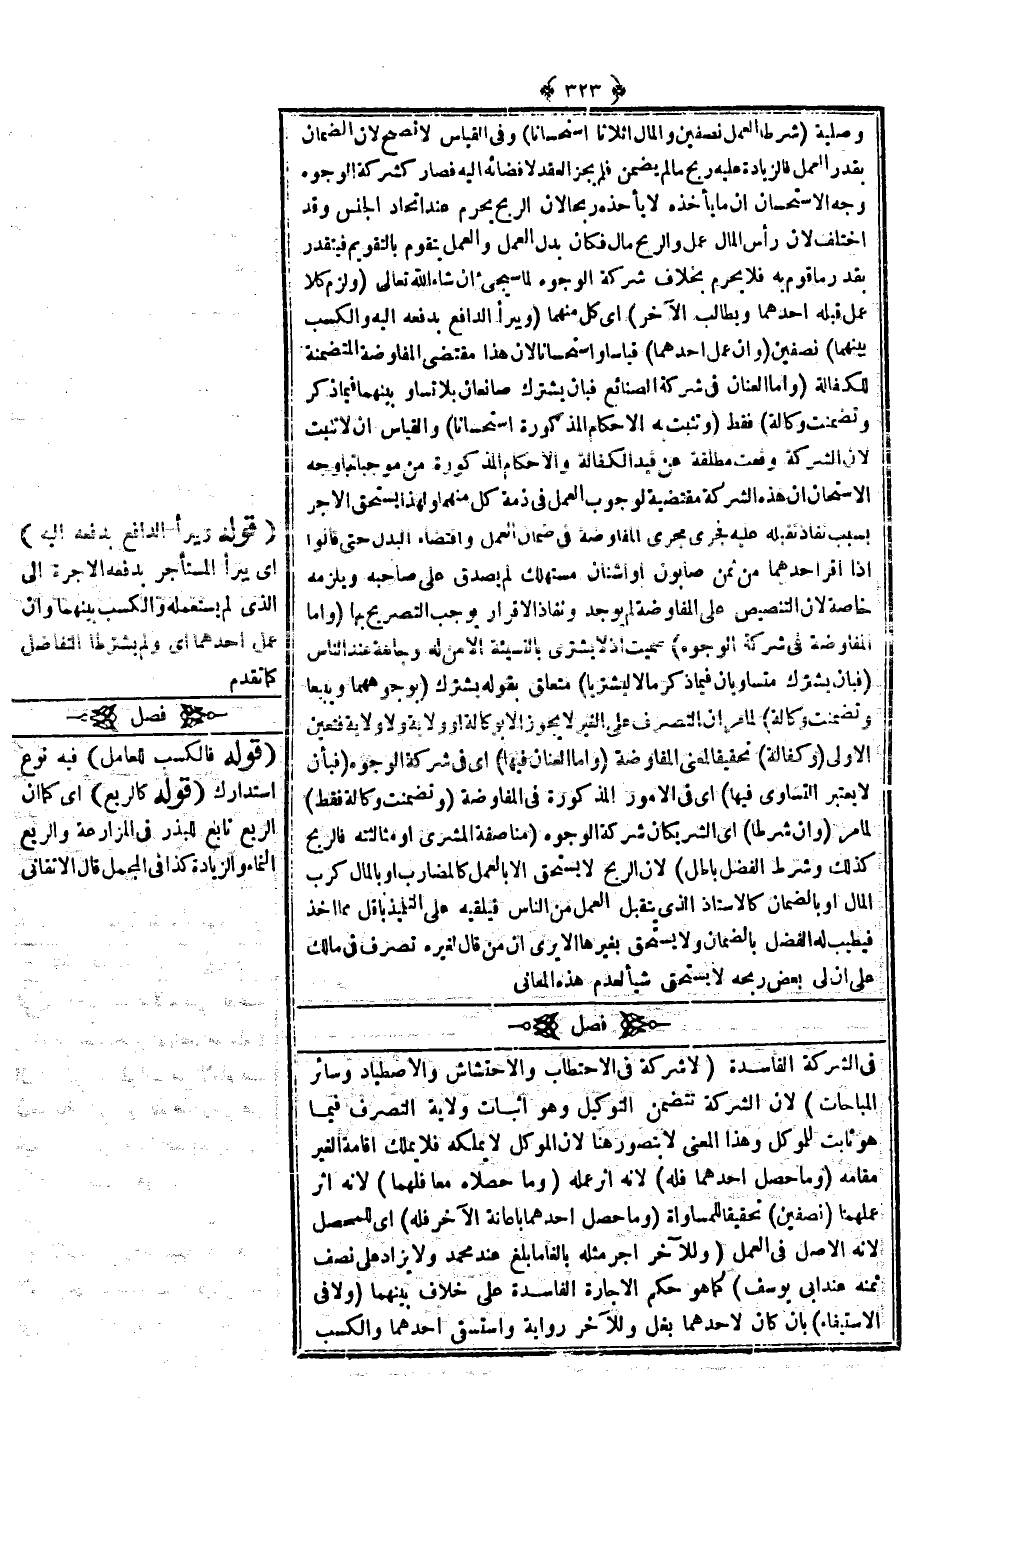 ﴿ ٣٢٣ ﴾
وصلية (شرط العمل نصفين والمال اثلاثا استحسانا) وفى القياس لا تصح لان الضمان
بقدر العمل فالزيادة عليه ربح مالم يضمن فلم يجز العقد لافضائه اليه فصار كشركة الوجوه
وجه الاستحسان ان ما يأخذه لا يأخذه ربحا لان الربح يحرم عند اتحاد الجنس وقد
اختلف لان رأس المال عمل والربح مال فكان بدل العمل والعمل يتقوم بالتقويم فيتقدر
بقدر ما قوم به فلا يحرم بخلاف شركة الوجوه لما سيجئ ان شاء الله تعالى (ولزم كلا
عمل قبله احدهما ويطالب الآخر) اى كل منهما (ويبرأ الدافع بدفعه اليه والكسب
بينهما) نصفين (وان عمل احدهما) قياسا واستحسانا لان هذا مقتضى المفاوضة المتضمنة
للكفالة (واما العنان فى شركة الصنائع فبان يشترك صانعان بلا تساو بينهما فيما ذكر
وتضمنت وكالة) فقط (وتثبت به الاحكام المذكورة استحسانا) والقياس ان لا تثبت
لان الشركة وقعت مطلقة عن قيد الكفالة والاحكام المذكورة من موجباتها وجه
الاستحان ان هذه الشركة مقتضية لوجوب العمل فى ذمة كل منهما ولهذا يستحق الاجر
بسبب نفاذ تقبله عليه فجرى مجرى المفاوضة فى ضمان العمل واقتضاء البدل حتى قالوا
اذا اقر احدهما من ثمن صابون او اشنان مستهلك لم يصدق على صاحبه ويلزمه
خاصة لان التنصيص على المفاوضة لم يوجد ونفاذ الاقرار يوجب التصريح بها (واما
المفاوضة فى شركة الوجوه) سميت اذ لا يشترى بالنسيئة الا من له وجاهة عند الناس
(فبان يشترك متساويان فيما ذكر مالا ليشتريا) متعلق بقوله يشترك (بوجوههما ويبيعا
وتضمنت وكالة) لما مر ان التصرف على الغير لا يجوز الا بوكالة او ولاية ولا ولاية فتعين
الاولى (وكفالة) تحقيقا لمعنى المفاوضة (واما العنان فيها) اى فى شركة الوجوه (فبأن
لا يعتبر التساوى فيها) اى فى الامور المذكورة فى المفاوضة (وتضمنت وكالة فقط)
لما مر (وان شرطا) اى الشريكان شركة الوجوه (مناصفة المشرى او مثالثته فالربح
كذلك وشرط الفضل باطل) لان الربح لا يستحق الا بالعمل كالمضارب او بالمال كرب
المال او بالضمان كالاستاذ الذى يتقبل العمل من الناس فيلقيه على التلميذ باقل مما اخذ
فيطيب له الفضل بالضمان ولا يستحق بغيرها الا يرى ان من قال لغيره تصرف فى مالك
على ان لى بعض ربحه لا يستحق شيأ لعدم هذه المعانى
فصل
فى الشركة الفاسدة ( لا شركة فى الاحتطاب والاحتشاش والاصطياد وسائر
المباحات ) لان الشركة تتضمن التوكيل وهو اثبات ولاية التصرف فيما
هو ثابت للموكل وهذا المعنى لا يتصور هنا لان الموكل لا يملكه فلا يملك اقامة الغير
مقامه (وما حصل احدهما فله) لانه اثر عمله ( وما حصلاه معا فلهما ) لانه اثر
عملهما (نصفين) تحقيقا للمساواة (وما حصل احدهما باعانة الآخر فله) اى للمحصل
لانه الاصل فى العمل ( وللآخر اجر مثله بالغا ما بلغ عند محمد ولا يزاد على نصف
ثمنه عند ابى يوسف) كما هو حكم الاجارة الفاسدة على خلاف بينهما (ولا فى
الاستقاء) بان كان لاحدهما بغل وللآخر رواية واستسقى احدهما والكسب
( قوله ويبرأ الدافع بدفعه اليه )
اى يبرأ المستأجر بدفعه الاجرة الى
الذى لم يستعمله والكسب بينهما وان
عمل احدهما اى ولم يشترطا التفاضل
كما تقدم
فصل
(قوله فالكسب للعامل) فيه نوع
استدارك (قوله كالريع) اى كما ان
الريع تابع للبذر فى المزارعة والريع
النماء والزيادة كذا فى المجمل قال الاتقانى